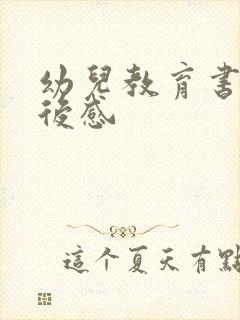 幼兒教育書
後感
這个夏天有點